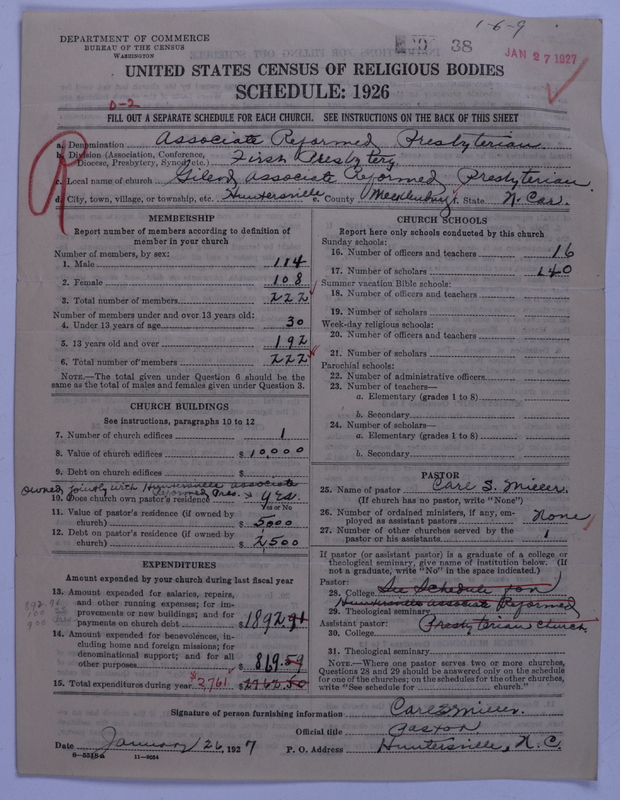 1-6-9
DEPARTMENT OF COMMERCE
BUREAU OF THE CENSUS
WASHINGTON
38
JAN 27 1927
UNITED STATES CENSUS OF RELIGIOUS BODIES
SCHEDULE: 1926
D-2
FILL OUT A SEPARATE SCHEDULE FOR EACH CHURCH. SEE INSTRUCTIONS ON THE BACK OF THIS SHEET
a. Denomination Associate Reformed Presbyterian
b. Division (Association, Conference, Diocese, Presbytery, Synod, etc.) First Presbytery
c. Local name of church Gilead Associate Reformed Presbyterian
d. City, town, village, or township, etc. Huntersville e. County Mecklenburg f. State N. Car.
MEMBERSHIP
Report number of members according to definition of member in your church
Number of members, by sex:
1. Male 114
2. Female 108
3. Total number of members 222
Number of members under and over 13 years old:
4. Under 13 years of age 30
5. 13 years old and over 192
6. Total number of members 222
NOTE.—The total given under Question 6 should be the same as the total of males and females given under Question 3.
CHURCH BUILDINGS
See instructions, paragraphs 10 to 12
7. Number of church edifices 1
8. Value of church edifices $ 10,000
9. Debt on church edifices $
owned jointly with Huntersville associate Reformed Pres.
10. Does church own pastor's residence yes.
Yes or No
11. Value of pastor's residence (if owned by church) $ 5000
12. Debt on pastor's residence (if owned by church) $ 2500
EXPENDITURES
Amount expended by your church during last fiscal year
13. Amount expended for salaries, repairs, and other running expenses; for improvements or new buildings; and for payments on church debt $ 1892.91
14. Amount expended for benevolences, including home and foreign missions; for denominational support; and for all other purposes $ 869.59
15. Total expenditures during year $2761 $ 2762.50
CHURCH SCHOOLS
Report here only schools conducted by this church
Sunday schools:
16. Number of officers and teachers 16
17. Number of scholars 140
Summer vacation Bible schools:
18. Number of officers and teachers
19. Number of scholars
Week-day religious schools:
20. Number of officers and teachers
21. Number of scholars
Parochial schools:
22. Number of administrative officers
23. Number of teachers—
a. Elementary (grades 1 to 8)
b. Secondary
24. Number of scholars—
a. Elementary (grades 1 to 8)
b. Secondary
PASTOR
25. Name of pastor Carl S. Miller.
(If church has no pastor, write "None")
26. Number of ordained ministers, if any, employed as assistant pastors None
27. Number of other churches served by the pastor or his assistants 1
If pastor (or assistant pastor) is a graduate of a college or theological seminary, give name of institution below. (If not a graduate, write "No" in the space indicated.)
Pastor:
28. College See Schedule for
Huntersville associate Reformed
29. Theological seminary
Assistant pastor: Presbyterian Church
30. College
31. Theological seminary
NOTE.—Where one pastor serves two or more churches, Questions 28 and 29 should be answered only on the schedule for one of the churches; on the schedules for the other churches, write "See schedule for church."
Signature of person furnishing information Carl S Miller.
Official title Pastor
Date January 26, 1927 P. O. Address Huntersville, N. C.
11-9584